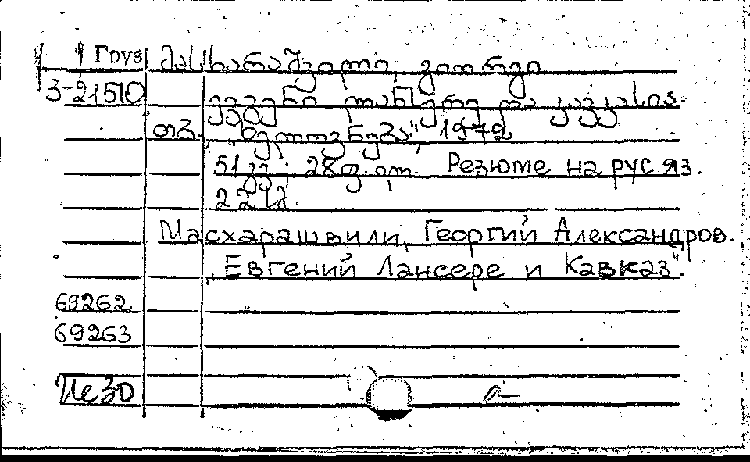 Груз
მასხარაშვილი, გიორგი
3-21510
ევგენი ლანსერე და კავკასია.
თბ. "ხელოვნება", 1972
51 გვ.; 28 ფ. ილ. Резюме на рус. яз.
Масхарашвили, Георгий Александров.
"Евгений Лансере и Кавказ".
69262
69263